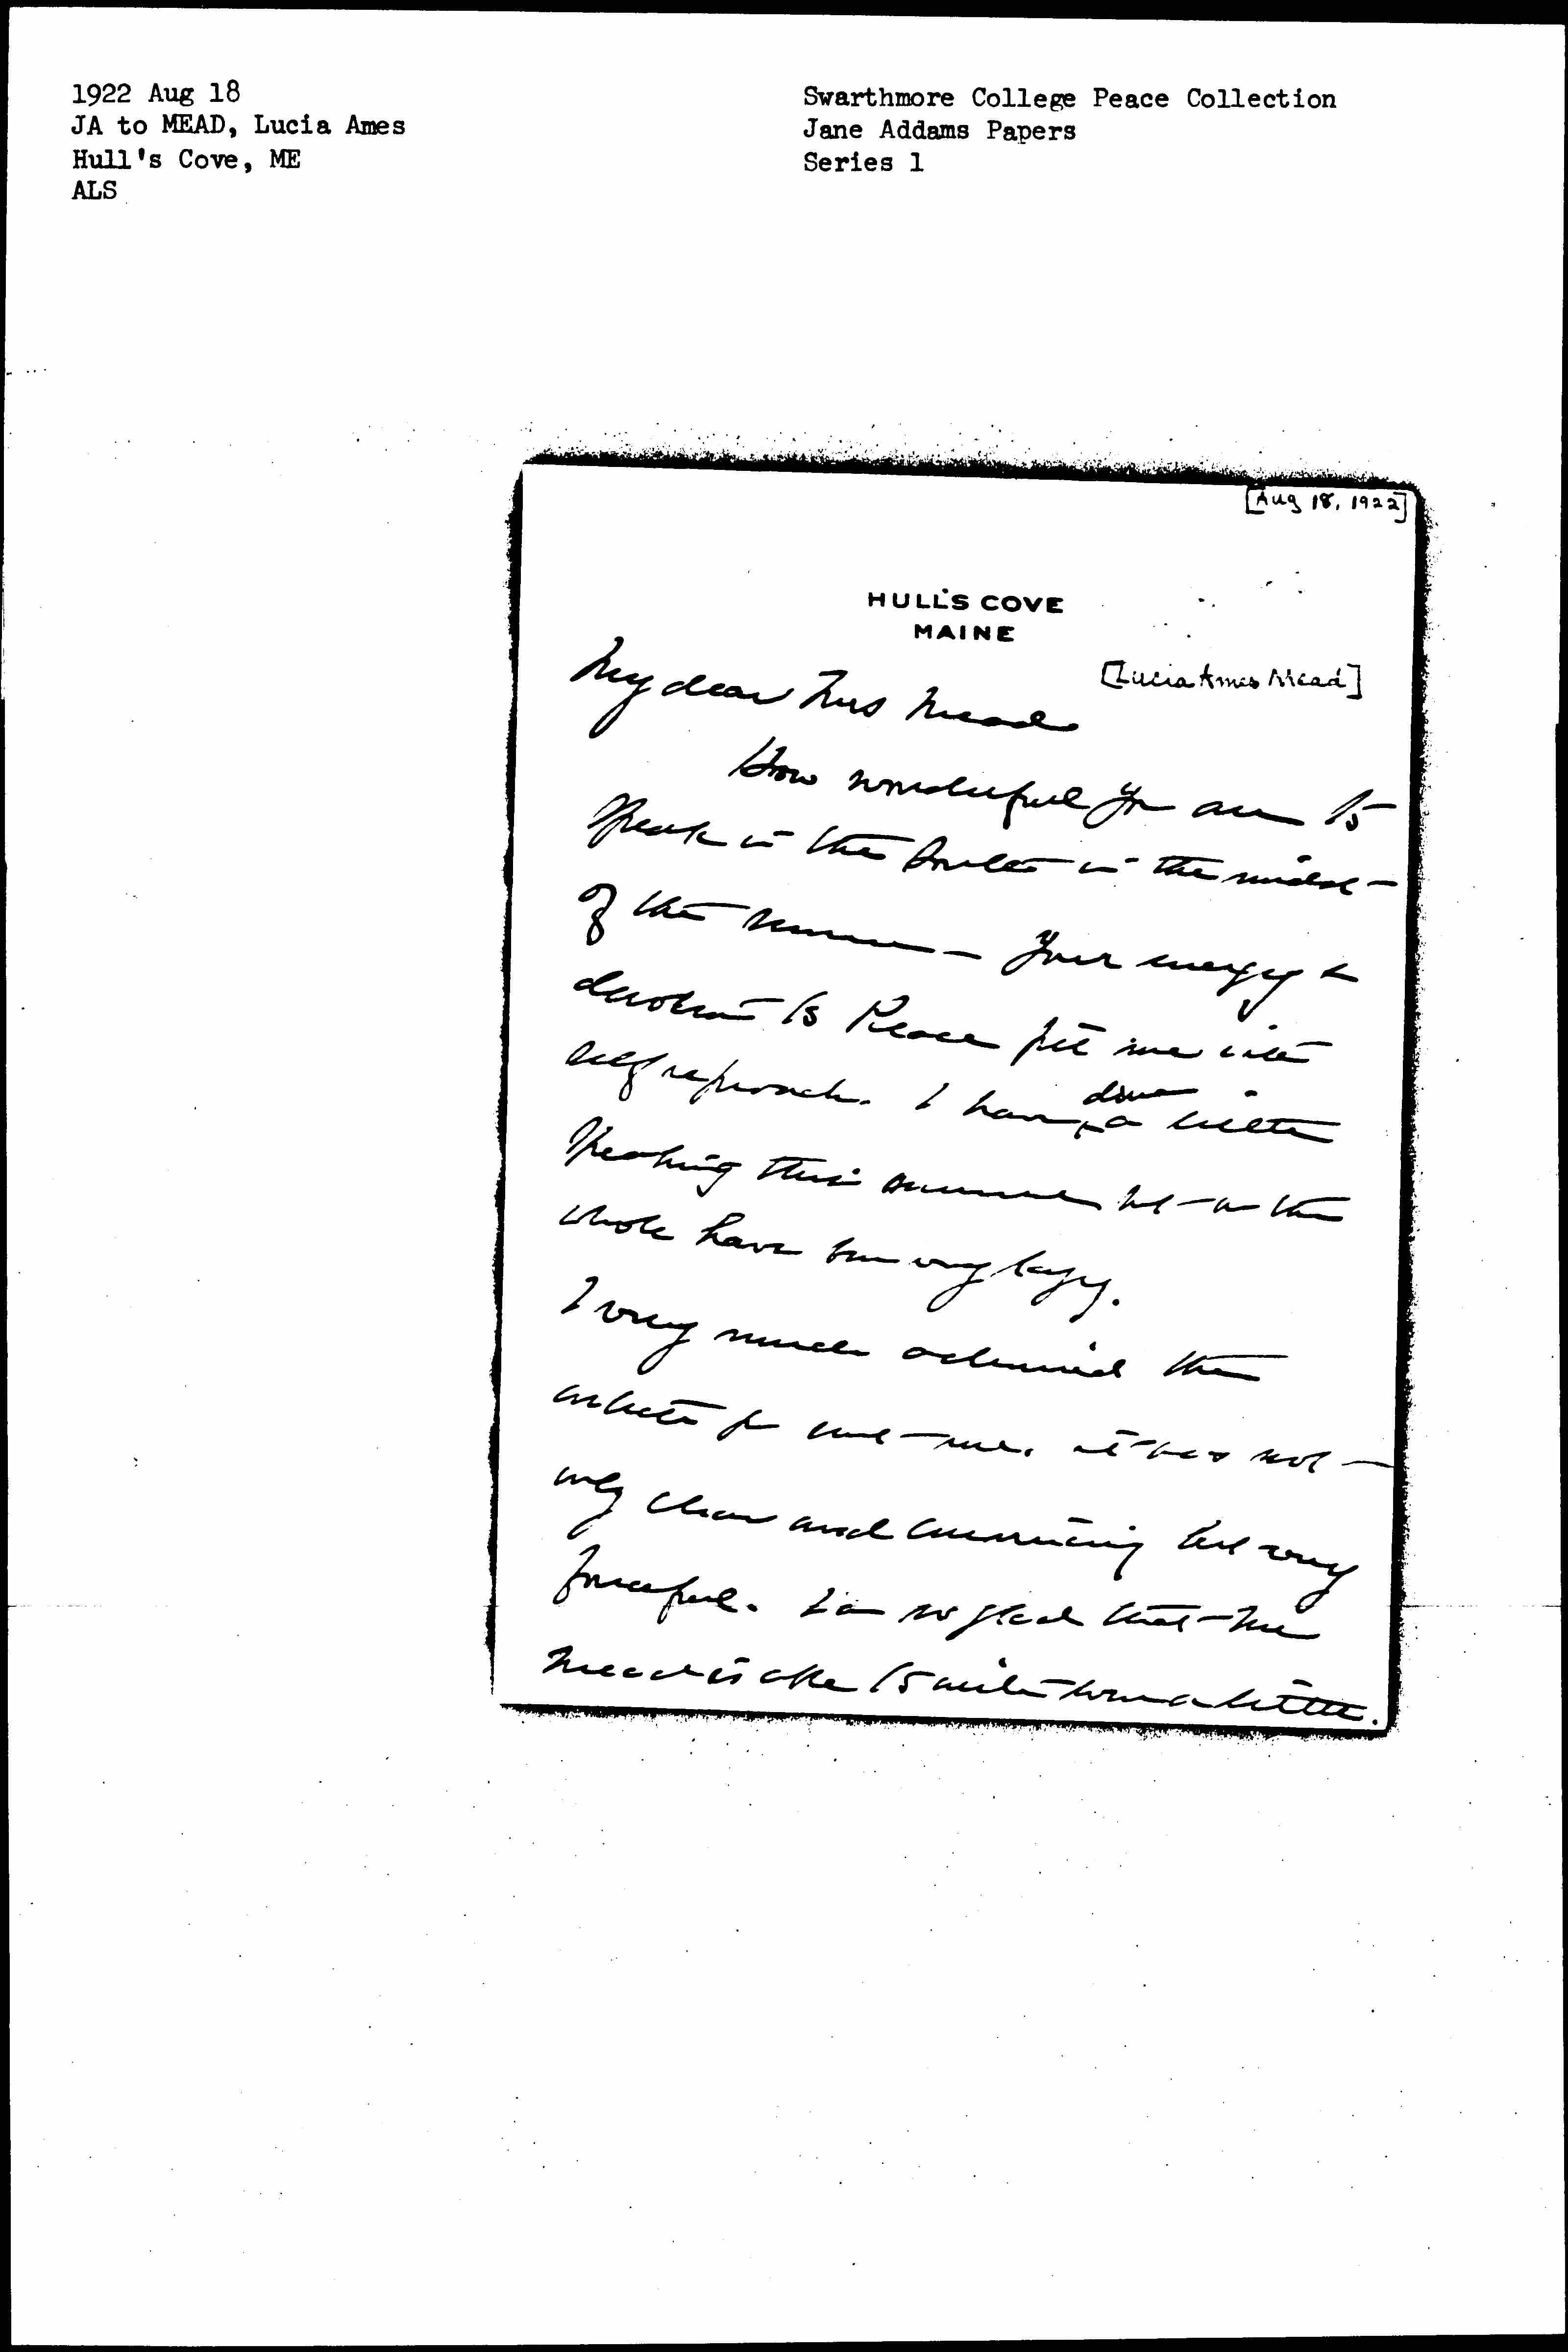 1922 Aug 18
JA to MEAD, Lucia Ames
Hull's Cove, ME
ALS
Swarthmore College Peace Collection
Jane Addams Papers
Series 1
[Aug 18, 1922]
HULL'S COVE
MAINE
[Lucia Ames Mead]
My dear Mrs Mead
How wonderful you are to
speak in the in the midst
of the summer – Your energy &
devotion to Peace fill me with
self reproach. I have done a little
speaking this summer but on the
whole have been very lazy.
I very much admired the
article you sent me. it was not
only clear and convincing but very
forceful. I am so glad that Mr
Mead is able to write home a little.